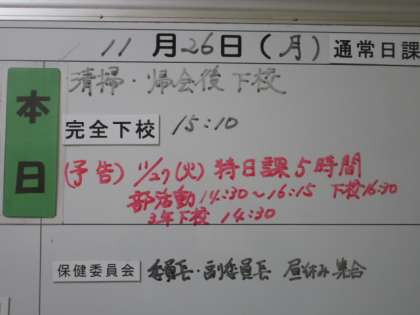 11月26日(月) 通常日課
本日
清掃・帰会後下校
完全下校 15:10
(予告) 11/27(火) 特日課5時間
部活動 14:30～16:15 下校16:30
3年下校 14:30
保健委員会 委員長・副委員長 昼休み集合